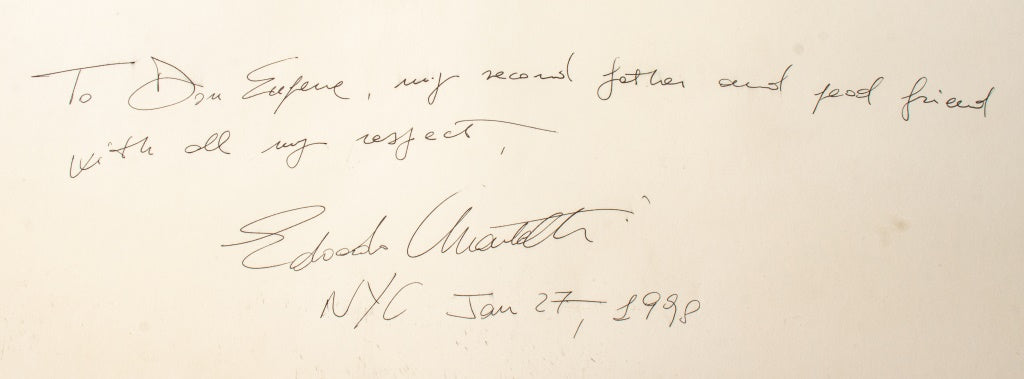 To Don Eugene, my second father and good friend
with all my respect,
Edoardo
NYC Jan 27, 1998